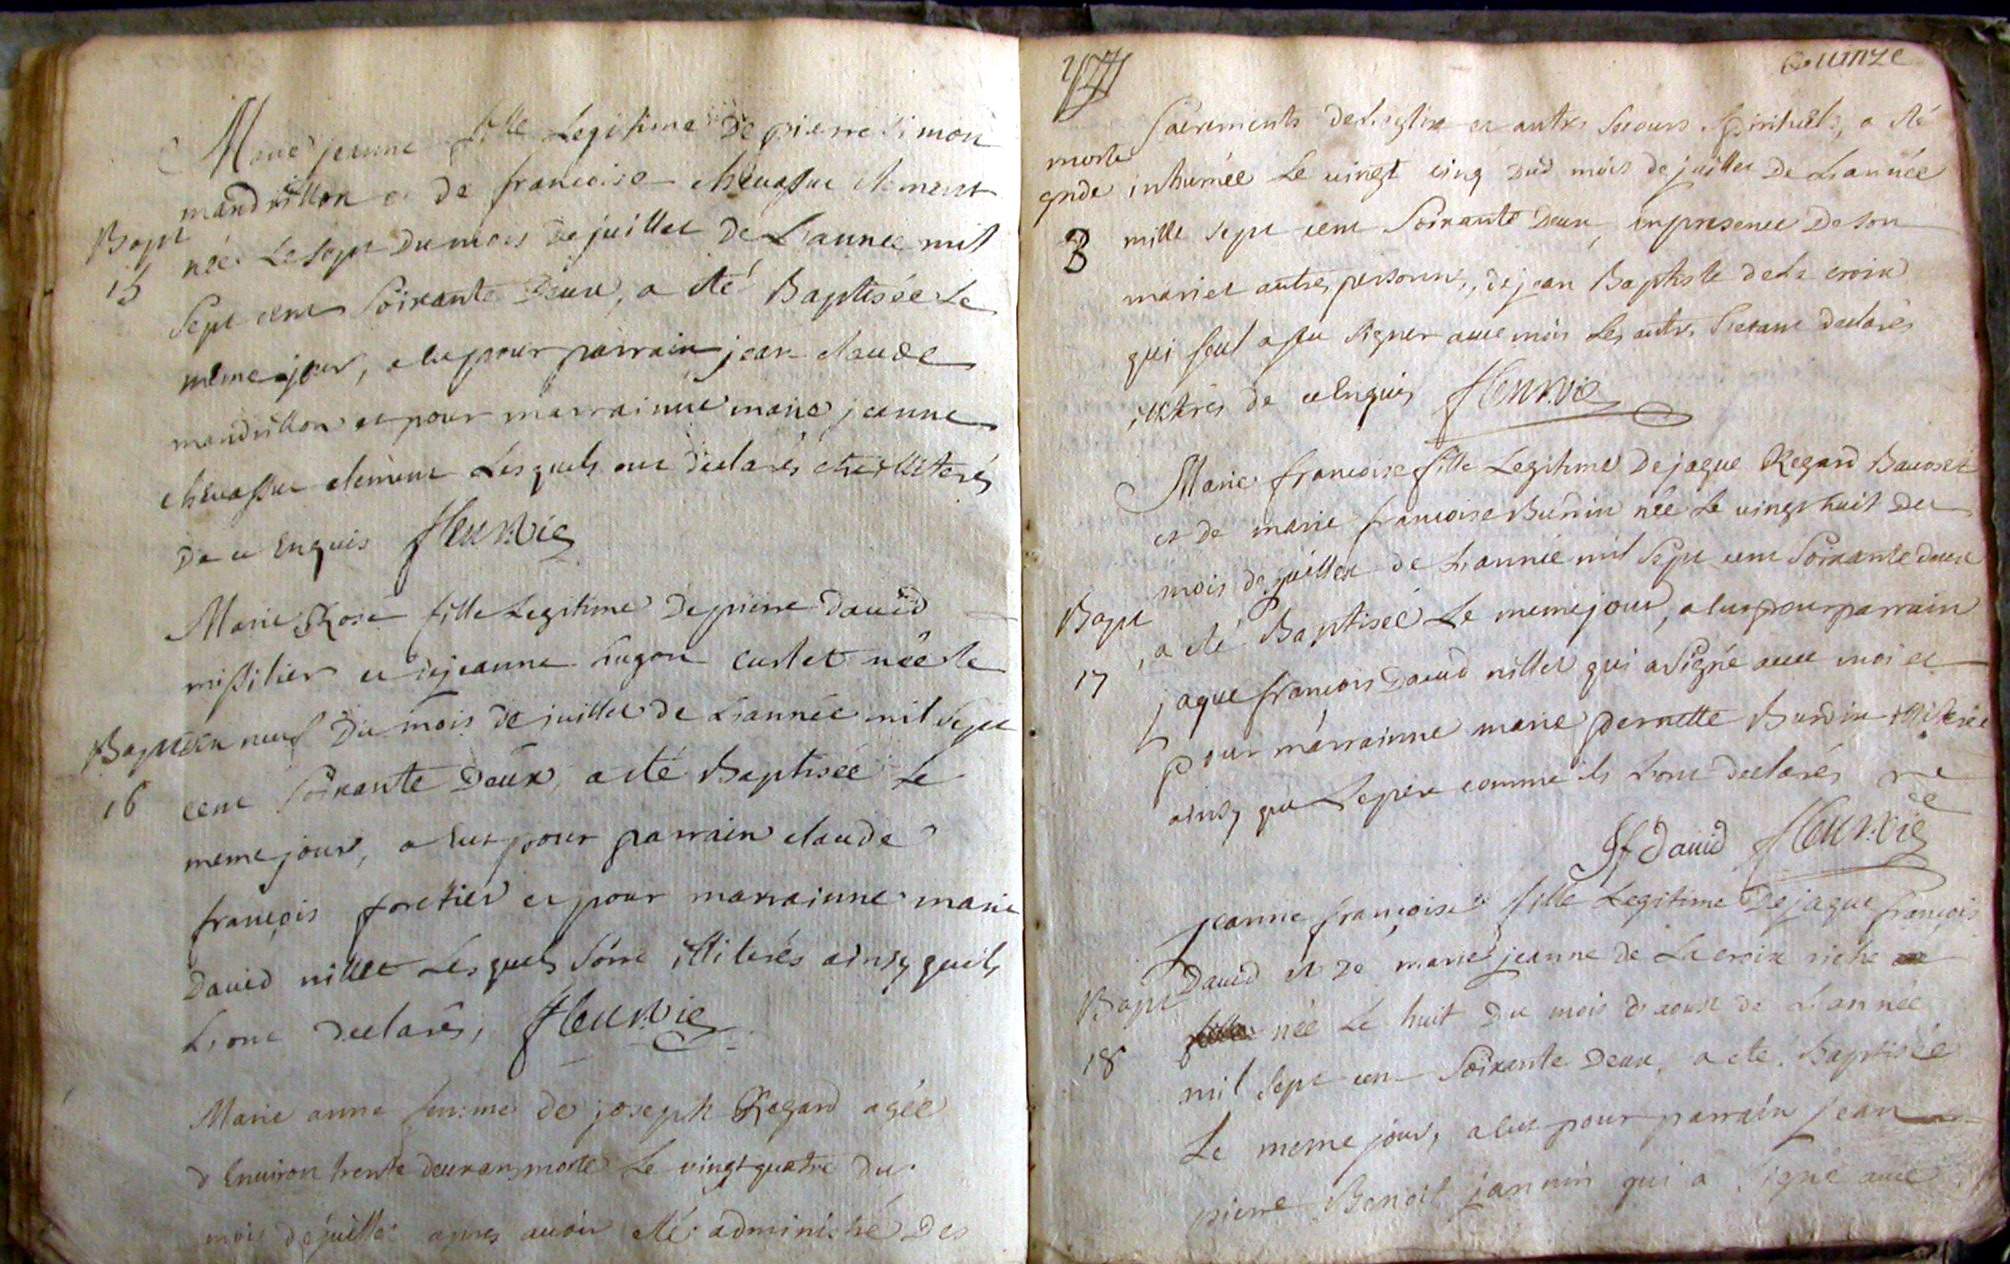 Marie jeanne fille Legitime De pierre Simon
mandrillon et de francoise chevassu clement
Bapt
15
née Le sept Du mois de juillet De L'année mil
Sept cent Soixante Deux, a été Baptisée Le
meme jour, a eu pour parrain jean claude
mandrillon et pour marrainne marie jeanne
chevassu clement Lesquels ont déclarés etre illiterés
De ce Enquis fleurie
Marie Rose fille Legitime De pierre David
missilier et de jeanne hugon custet née le
Bapt
16
neuf Du mois de juillet de L'année mil Sept
cent Soixante Deux, a été Baptisée Le
meme jour, a eut pour parrain claude
françois foretier et pour marrainne marie
David nillet Lesquels Sont illiterés ainsy quils
L'ont declarés, fleurie
Marie anne femme de joseph Regard agée
d'Environ trente deux ans morte Le vingt quatre Du
mois de juillet apres avoir été administré Des
Quinze
Sacrements de L'eglise et autres secours Spirituels, a été
morte
3
inhumée Le vingt cinq Dud mois de juillet De L'année
mille Sept cent Soixante Deux, en presence De son
mari et autres personnes, de jean Baptiste de La croix
qui seul a su signer avec mois Les autres S'etant declarés
illiterés de ce Enquis fleurie
Marie françoise fille Legitime De jaque Regard
et De marie francoise Burdin née Le vingt huit Du
mois de juillet de L'année mil Sept cent Soixante deux
Bapt
17
, a été Baptisée Le meme jour, a eut pour parrain
jaque françois David nillet qui a signé avec moi et
pour marrainne marie pernette Burdin illiterée
ainsy que Le pere comme ils L'ont declarés
Jf david fleurie
jeanne françoise fille Legitime De jaque françois
Bapt
18
David et De marie jeanne de Lacroix riche
née Le huit Du mois d'aoust de L'année
mil Sept cent Soixante Deux, a été Baptisée
Le meme jour, a eut pour parrain jean
pierre Benoit jannin qui a Signé avec